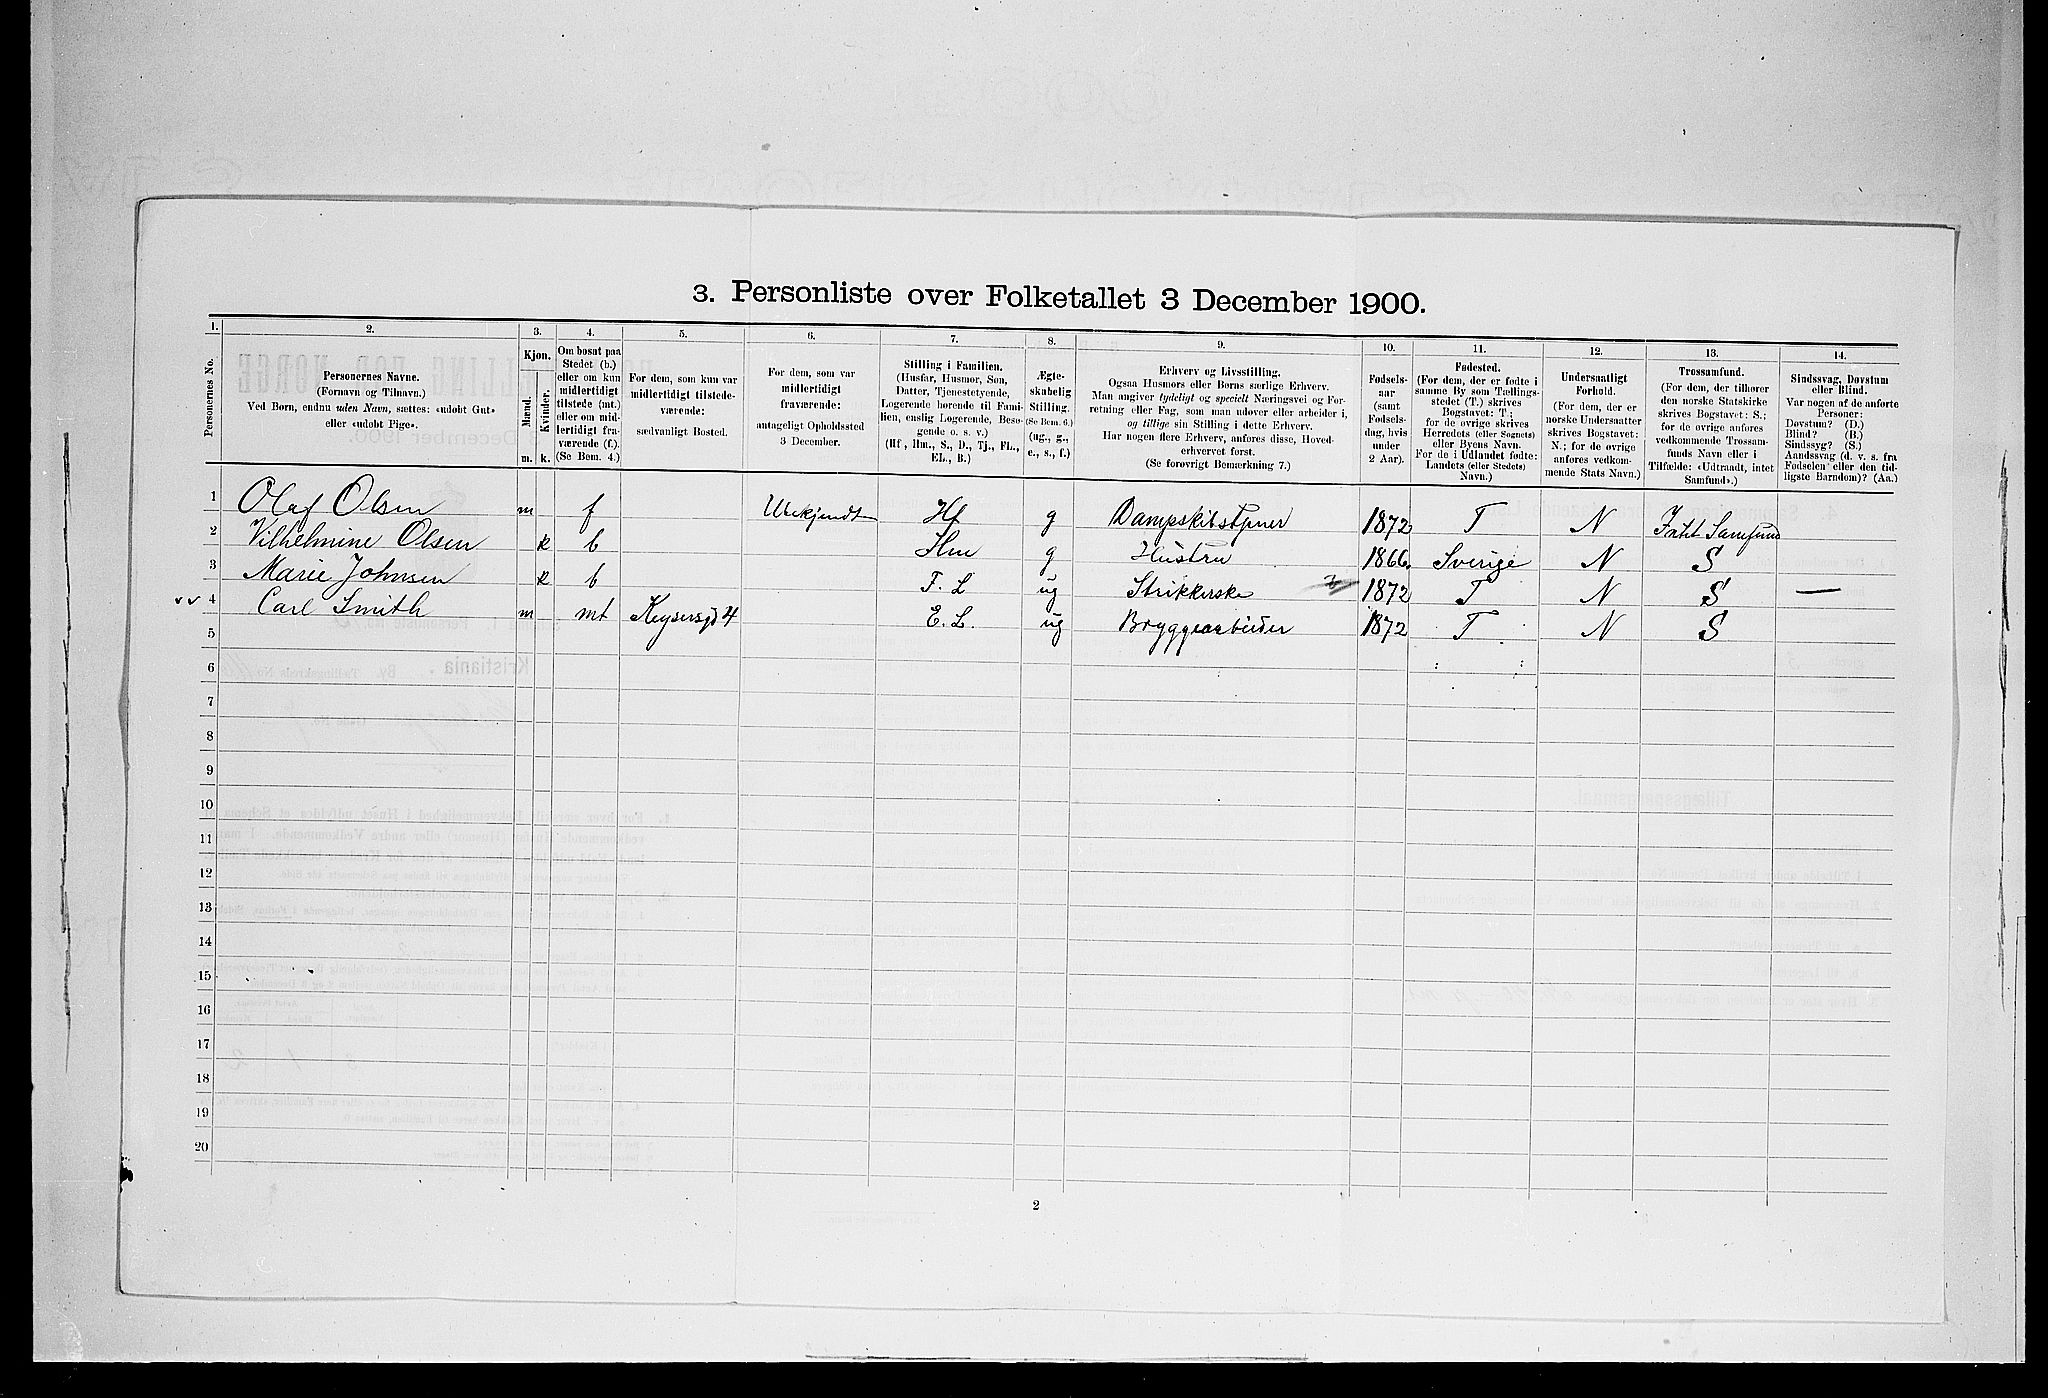 3. Personliste over Folketallet 3 December 1900.
1. 2. 3. 4. 5. 6. 7. 8. 9. 10. 11. 12. 13. 14.
Personernes No.
Personernes Navne.
(Fornavn og Tilnavn.)
Ved Børn, endnu uden Navn, sættes: «udøbt Gut»
eller «udøbt Pige».
Kjøn.
Mænd.
Kvinder.
m. k.
Om bosat paa
Stedet (b.)
eller om kun
midlertidigt
tilstede (mt.)
eller om mid-
lertidigt fra-
værende (f.).
(Se Bem. 4.)
For dem, som kun var
midlertidigt tilstede-
værende:
sædvanligt Bosted.
For dem, som var
midlertidigt
fraværende:
antageligt Opholdssted
3 December.
Stilling i Familien.
(Husfar, Husmor, Søn,
Datter, Tjenestetyende,
Logerende hørende til Fami-
lien, enslig Logerende, Besø-
gende o. s. v.)
(Hf., Hm., S., D., Tj., FL.,
EL., B.)
Ægte-
skabelig
Stilling.
(Se Bem. 6.)
(ug., g.,
e., s., f.)
Erhverv og Livsstilling.
Ogsaa Husmors eller Børns særlige Erhverv.
Man angiver tydeligt og specielt Næringsvei og For-
retning eller Fag, som man udøver eller arbeider i,
og tillige sin Stilling i dette Erhverv.
Har nogen flere Erhverv, anføres disse, Hoved-
erhvervet først.
(Se forøvrigt Bemærkning 7.)
Fødsels-
aar
(samt
Fødsels-
dag, hvis
under
2 Aar).
Fødested.
(For dem, der er fødte i
samme By som Tællings-
stedet (T.) skrives
Bogstavet: T.;
for de øvrige skrives
Herredets (eller Sognets)
eller Byens Navn.
For de i Udlandet fødte:
Landets (eller Stedets)
Navn.)
Undersaatligt
Forhold.
(For dem, der er
norske Undersaatter
skrives Bogstavet:
N.; for de øvrige
anføres vedkom-
mende Stats Navn.)
Trossamfund.
(For dem, der tilhører
den norske Statskirke
skrives Bogstavet: S.;
for de øvrige anføres
vedkommende Trossam-
funds Navn eller i
Tilfælde: «Udtraadt, intet
Samfund».)
Sindssvag, Døvstum
eller Blind.
Var nogen af de anførte
Personer:
Døvstum? (D.)
Blind? (B.)
Sindssyg? (S.)
Aandssvag (d. v. s. fra
Fødselen eller den tid-
ligste Barndom)? (Aa.)
1 Olaf Olsen m f Ubekjendt Hf g 1872 T N
2 Vilhelmine Olsen k b Hm g Hustru 1866 Sverige N S
3 Marie Johnsen k b F. L ug Strikkerske 1872 T N S —
4 Carl Smith m mt Keysersgd 4 E. L. ug Bryggearbeider 1872 T N S
5
6
7
8
9
10
11
12
13
14
15
16
17
18
19
20
2